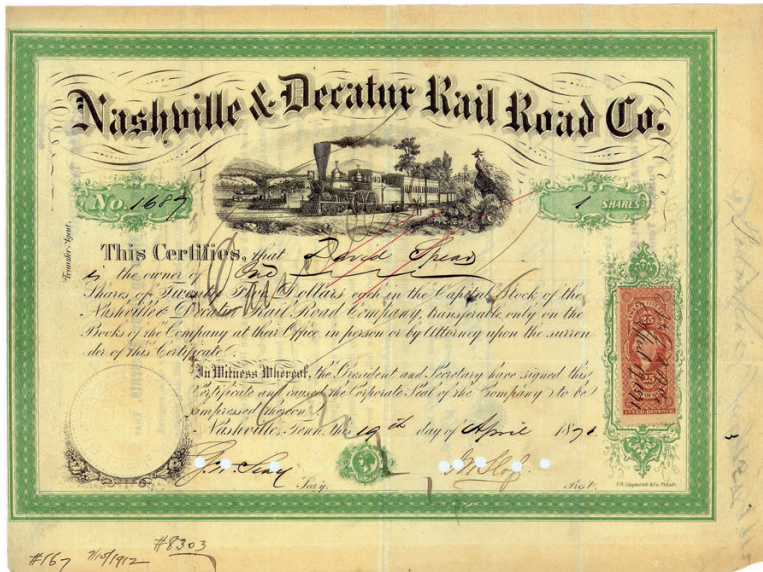 Nashville & Decatur Rail Road Co.
No. 1687
1 SHARES
Transfer Agent.
This Certifies, that David
is the owner of One
Shares of Twenty Five Dollars each in the Capital Stock of the
Nashville & Decatur Rail Road Company, transferable only on the
Books of the Company at their Office in person or by Attorney upon the surren
der of this Certificate.
In Witness Whereof, the President and Secretary have signed this
Certificate and caused the Corporate Seal of the Company to be
impressed thereon.
Nashville, Tenn. this 19th day of April 187
25
25
Sec'y.
Prest.
#167 7/10/1912 #8303